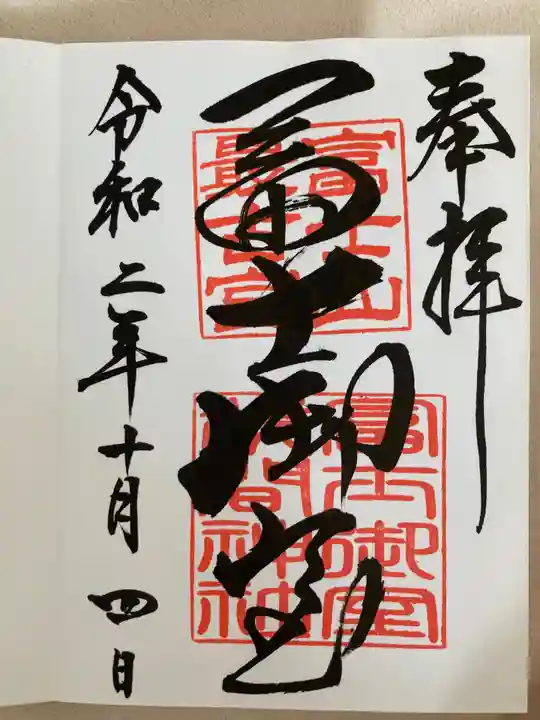 奉拝
冨士御室
富士山最古宮
冨士御室浅間神社
令和二年十月四日